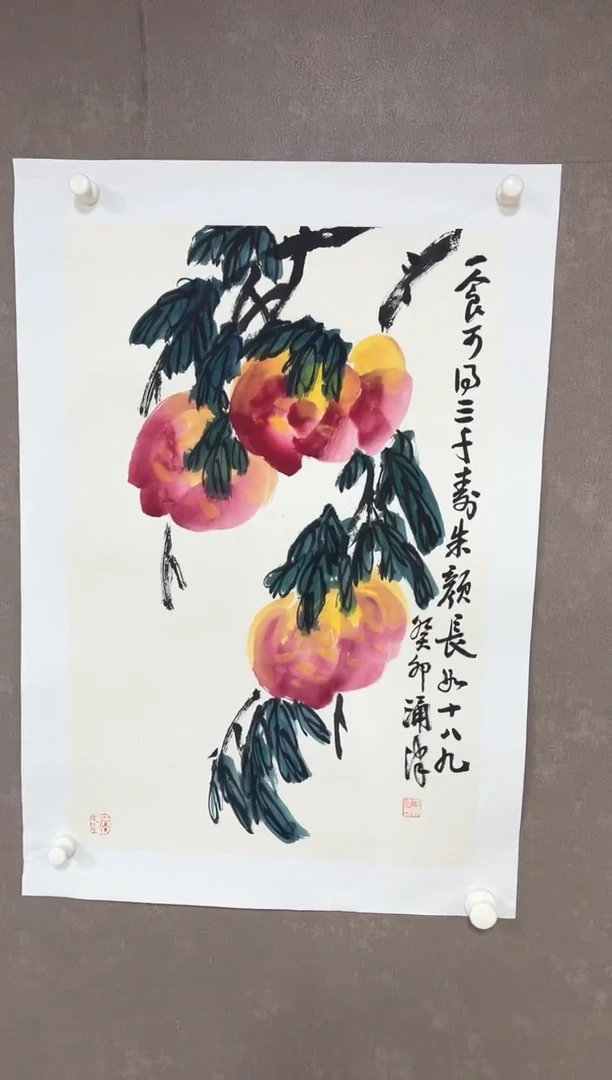 一食可得三千寿朱颜長如十八九
癸卯涌津